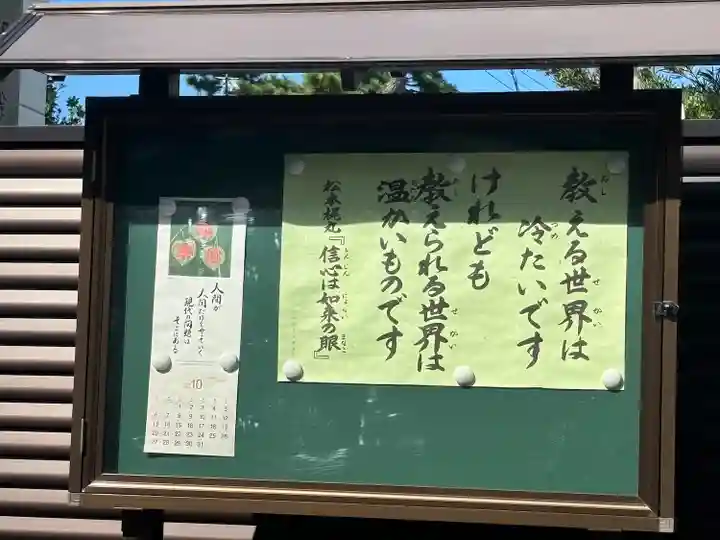 教える世界は
冷たいです
けれども
教えられる世界は
温かいものです
松本梶丸『信心は如来の眼』
人間が
人間だけでやっていく
現代の問題は
そこにある
10